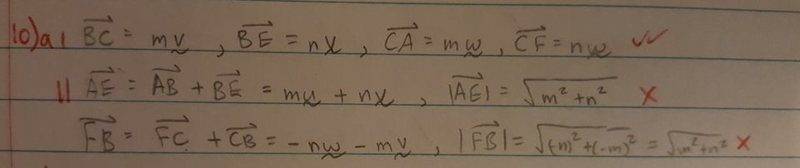 10) a i $\overrightarrow{BC}$ = m$\underset{\sim}{v}$ , $\overrightarrow{BE}$ = n$\underset{\sim}{v}$ , $\overrightarrow{CA}$ = m$\underset{\sim}{w}$ , $\overrightarrow{CF}$ = n$\underset{\sim}{w}$ ✓✓
ii $\overrightarrow{AE}$ = $\overrightarrow{AB}$ + $\overrightarrow{BE}$ = m$\underset{\sim}{u}$ + n$\underset{\sim}{v}$ , |$\overrightarrow{AE}$| = $\sqrt{m^2+n^2}$ ✗
$\overrightarrow{FB}$ = $\overrightarrow{FC}$ + $\overrightarrow{CB}$ = -n$\underset{\sim}{w}$ - m$\underset{\sim}{v}$ , |$\overrightarrow{FB}$| = $\sqrt{(-n)^2+(-m)^2}$ = $\sqrt{m^2+n^2}$ ✗